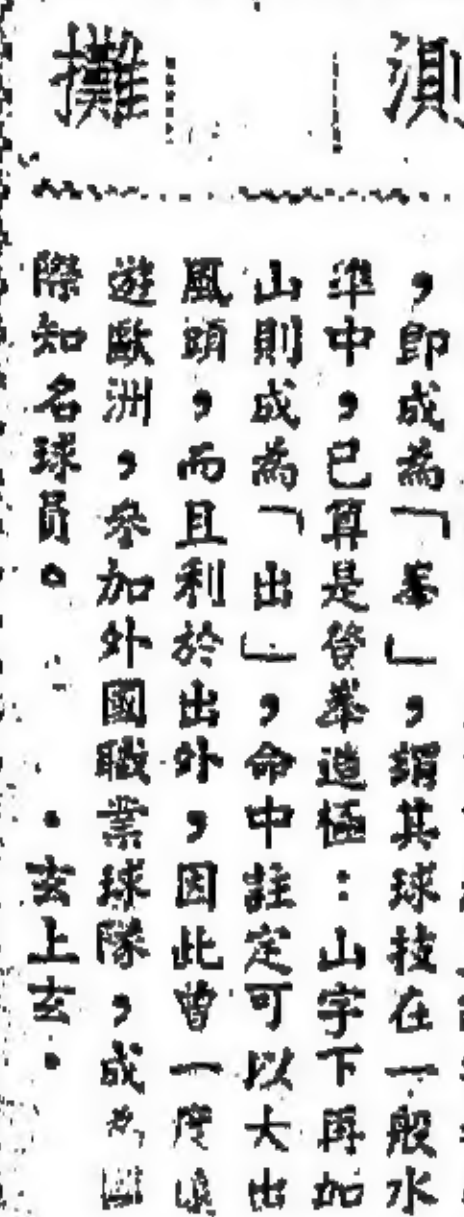 測
攤
，即成為「峯」，謂其球技在一般水
準中，已算是登峯造極：山字下再加
山則成為「出」，命中註定可以大出
風頭，而且利於出外，因此曾一度遠
遊歐洲，參加外國職業球隊，成為國
際知名球員。
・玄上玄・